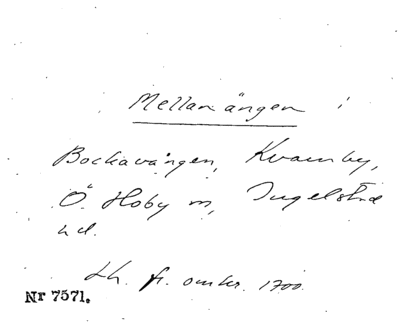 Mellanängen i
Bockavången, Kvarnby,
Ö. Hoby m, Ingelstad
hd.
Lh. fr. omkr. 1700.
Nr 7571.